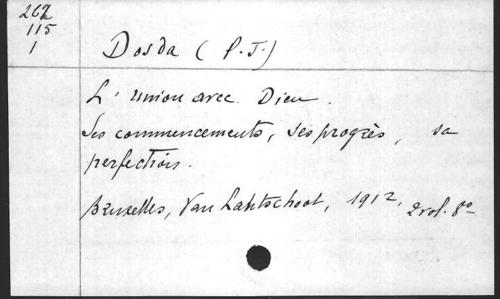 262
115
1
Dosda (P.J.)
L'union avec Dieu.
Ses commencements, ses progrès, sa
perfection.
Bruxelles, Van Lantschoot, 1912, 2 vol. 8º